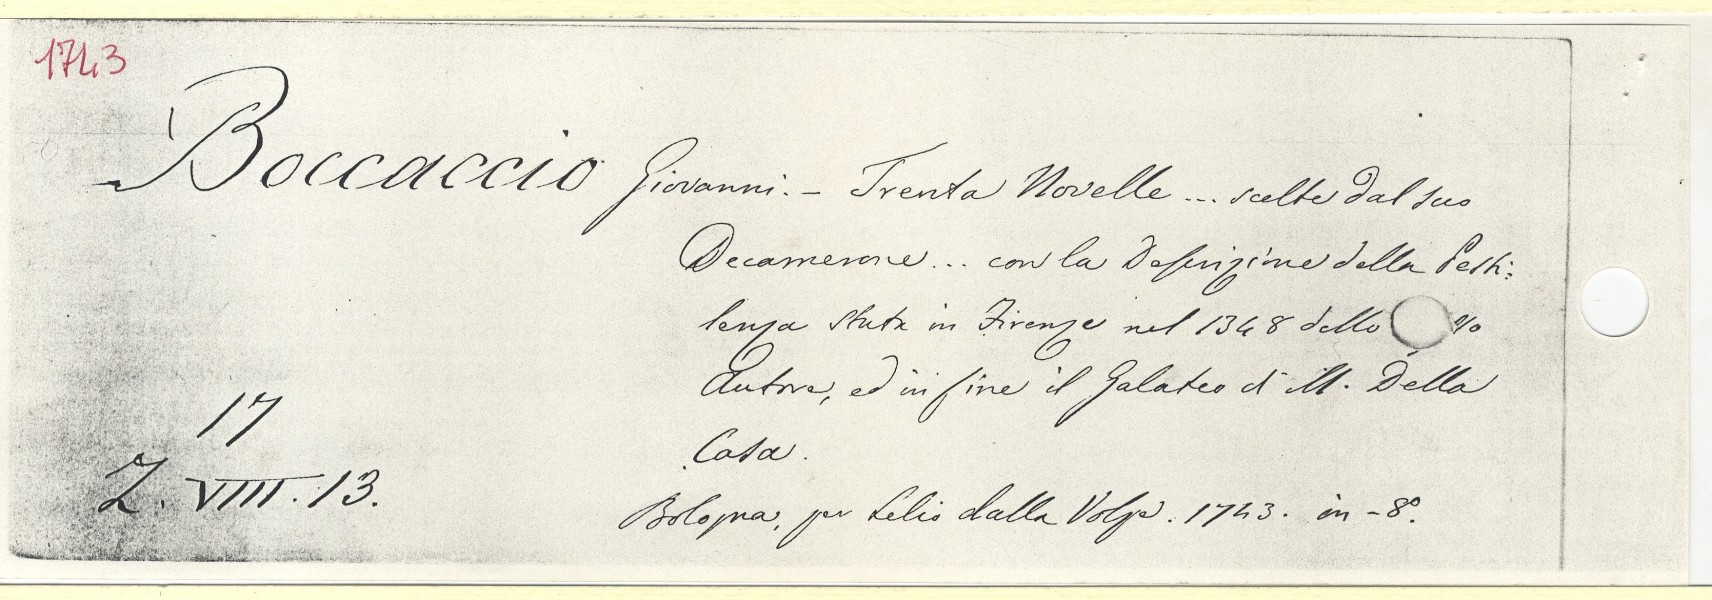 1743
Boccaccio Giovanni. - Trenta Novelle ... scelte dal suo
Decamerone ... con la Descrizione della Pesti:
lenza stata in Firenze nel 1348 dello
Autore, ed in fine il Galateo di M. Della
Casa.
17
Z. VIII. 13.
Bologna, per Lelio dalla Volpe. 1743. in - 8°.